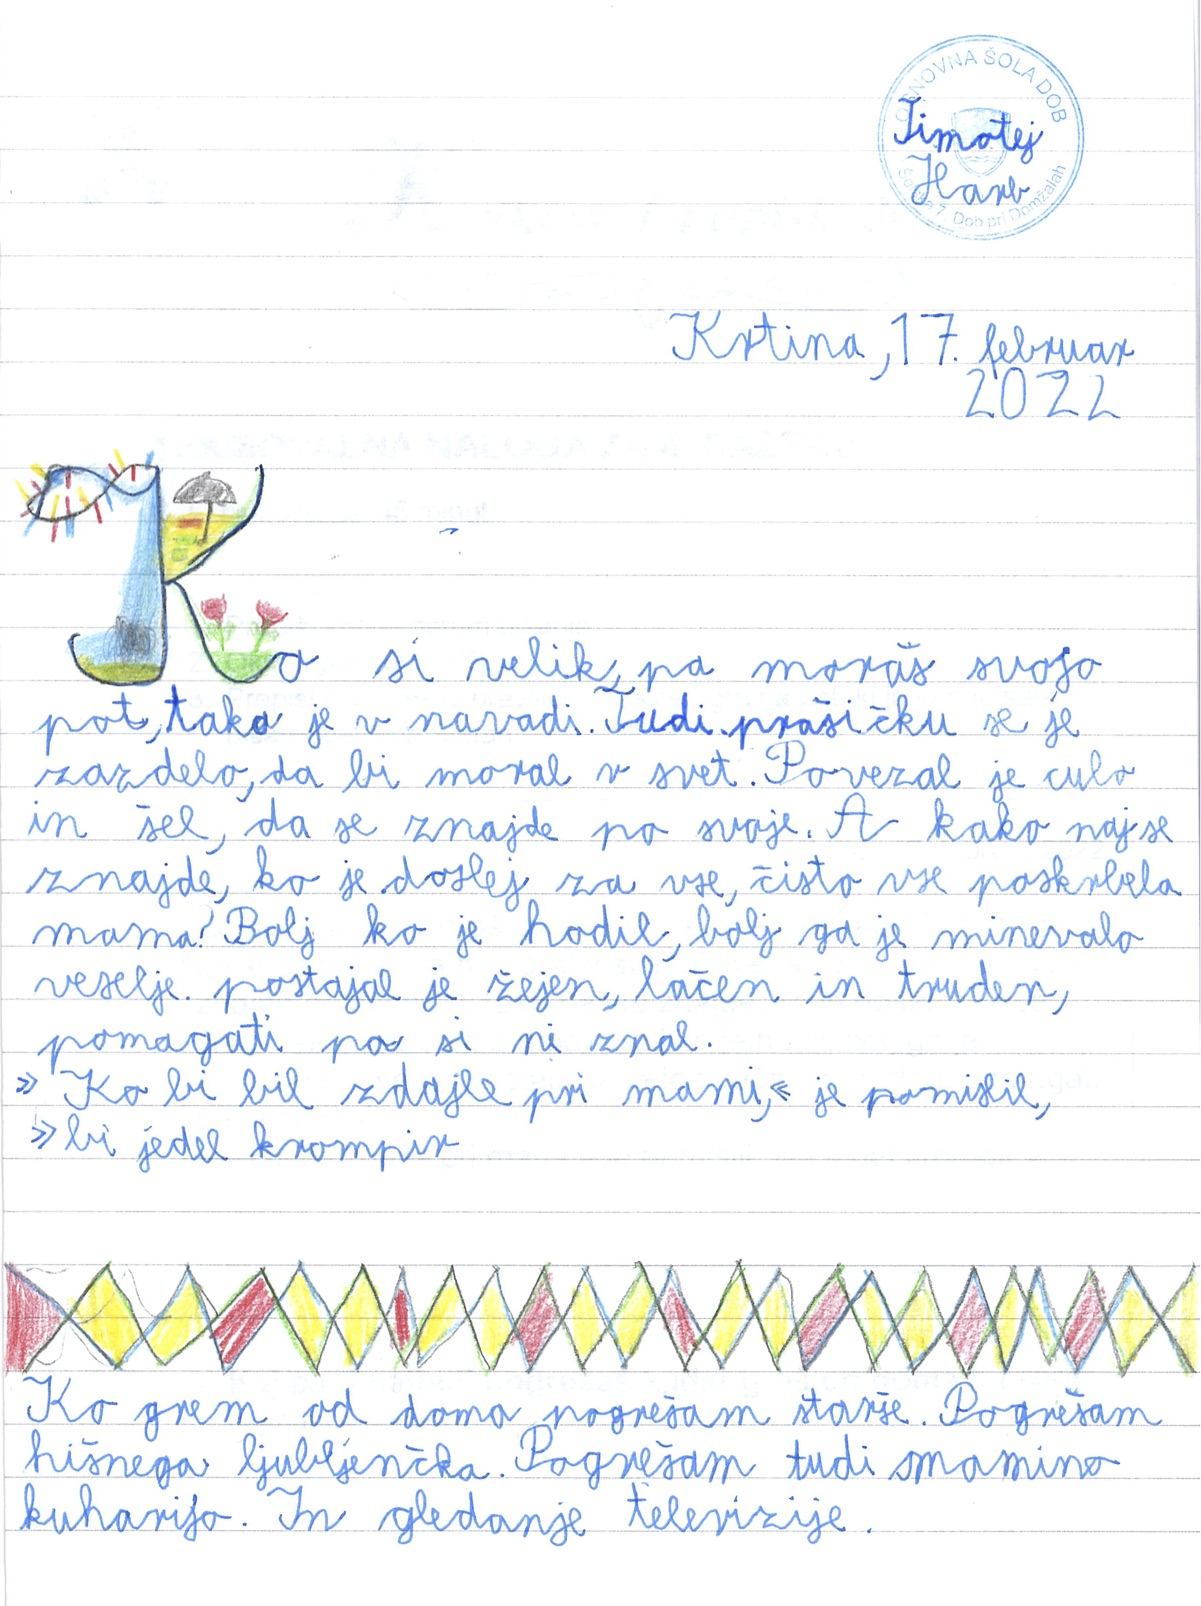 OSNOVNA ŠOLA DOB
Timotej
Harb
7, Dob pri Domžalah
Krtina, 17. februar
2022
Ko si velik, pa moraš svojo
pot, tako je v navadi. Tudi prašičku se je
zazdelo, da bi moral v svet. Povezal je culo
in šel, da se znajde po svoje. A kako naj se
znajde, ko je doslej za vse, čisto vse poskrbela
mama? Bolj ko je hodil, bolj ga je minevalo
veselje. postajal je žejen, lačen in truden,
pomagati pa si ni znal.
»Ko bi bil zdajle pri mami,« je pomislil,
»bi jedel krompir
Ko grem od doma pogrešam starše. Pogrešam
hišnega ljubljenčka. Pogrešam tudi smamino
kuharijo. In gledanje televizije.